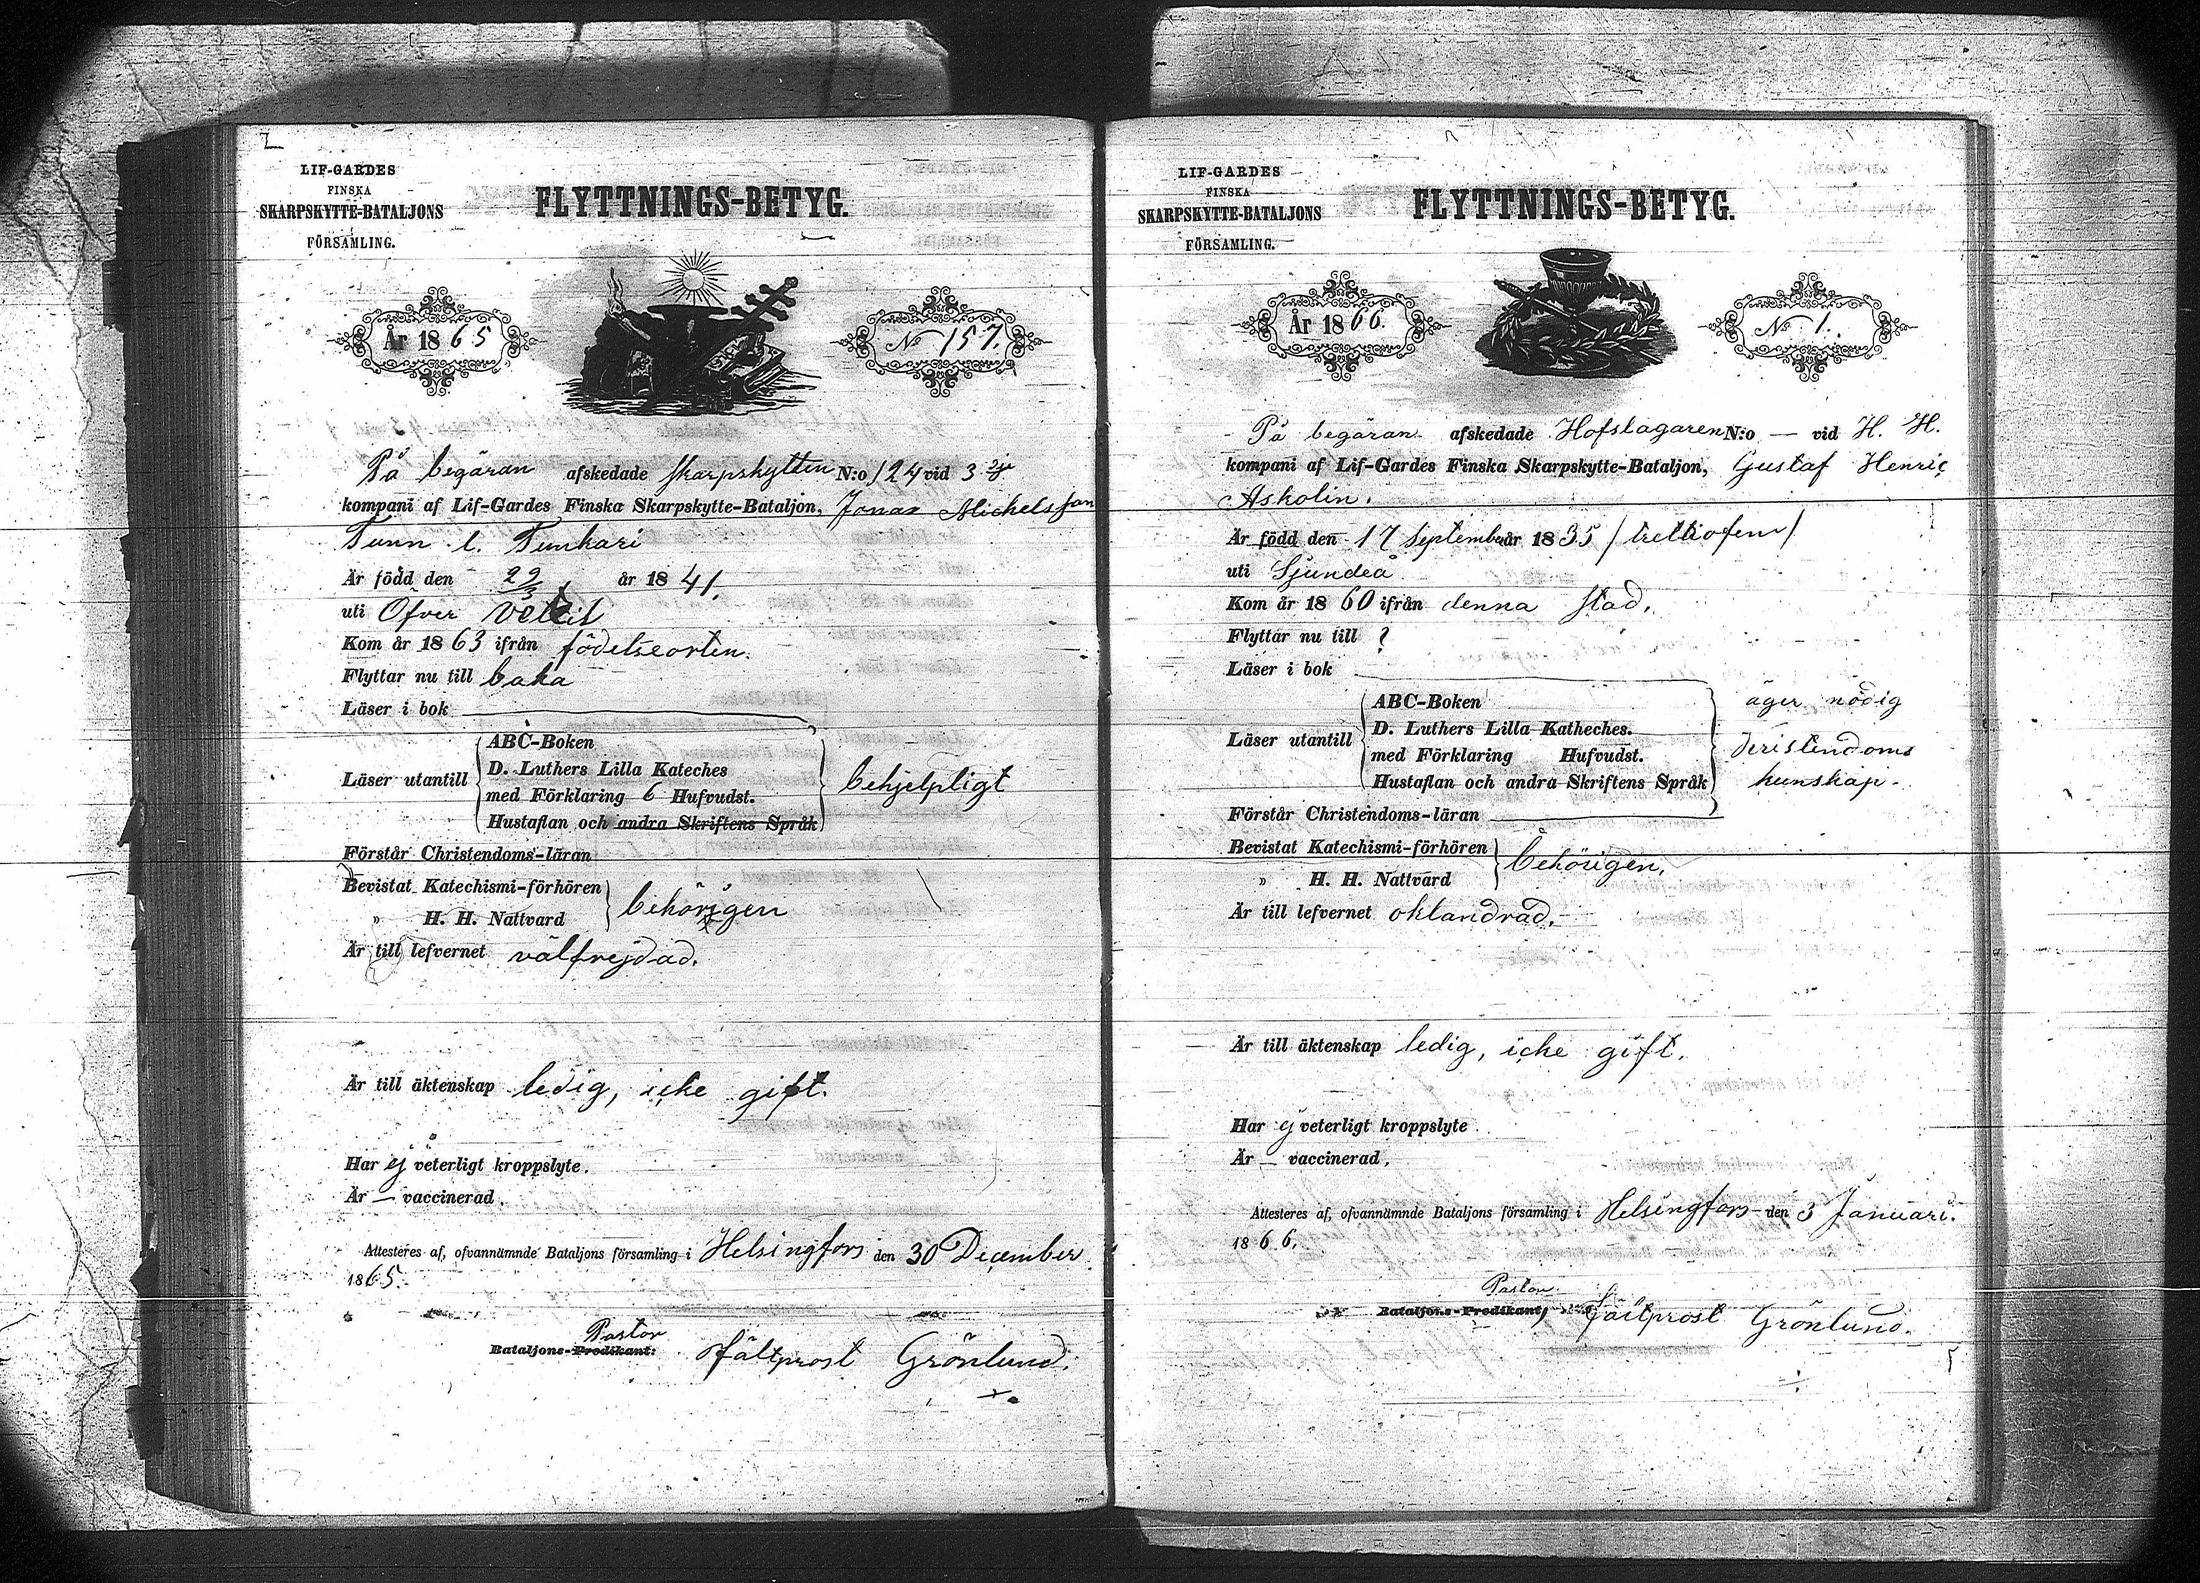 LIF-GARDES
FINSKA
SKARPSKYTTE-BATALJONS
FÖRSAMLING.
FLYTTNINGS-BETYG.
År 1865
No 157.
På begäran afskedade skarpskytten N:o 124 vid 3dje
kompani af Lif-Gardes Finska Skarpskytte-Bataljon, Jonas Michelsson
Tunn l. Tunkari
Är född den 22/3 år 1841.
uti Öfver Vetil
Kom år 1863 ifrån födelseorten.
Flyttar nu till baka
Läser i bok
Läser utantill
ABC-Boken
D. Luthers Lilla Kateches
med Förklaring 6 Hufvudst.
Hustaflan och andra Skriftens Språk
behjelpligt
Förstår Christendoms-läran
Bevistat Katechismi-förhören
" H. H. Nattvard
behörigen
Är till lefvernet välfrejdad.
Är till äktenskap ledig, icke gift.
Har ej veterligt kroppslyte.
Är — vaccinerad.
Attesteres af, ofvannämnde Bataljons församling i Helsingfors den 30 December
1865.
Pastor
Bataljons-Predikant: Fältprost Grönlund.
LIF-GARDES
FINSKA
SKARPSKYTTE-BATALJONS
FÖRSAMLING.
FLYTTNINGS-BETYG.
År 1866.
No 1.
På begäran afskedade Hofslagaren N:o — vid H. H.
kompani af Lif-Gardes Finska Skarpskytte-Bataljon, Gustaf Henric
Askolin.
Är född den 17 September år 1835 /trettiofem/
uti Sjundeå
Kom år 1860 ifrån denna stad.
Flyttar nu till ?
Läser i bok
Läser utantill
ABC-Boken
D. Luthers Lilla Katheches.
med Förklaring Hufvudst.
Hustaflan och andra Skriftens Språk
äger nödig
kristendoms
kunskap.
Förstår Christendoms-läran
Bevistat Katechismi-förhören
" H. H. Nattvard
behörigen.
Är till lefvernet oklandrad.
Är till äktenskap ledig, icke gift.
Har ej veterligt kroppslyte
Är — vaccinerad.
Attesteres af, ofvannämnde Bataljons församling i Helsingfors den 3 Januari.
1866.
Pastor
Bataljons-Predikant, Fältprost Grönlund.